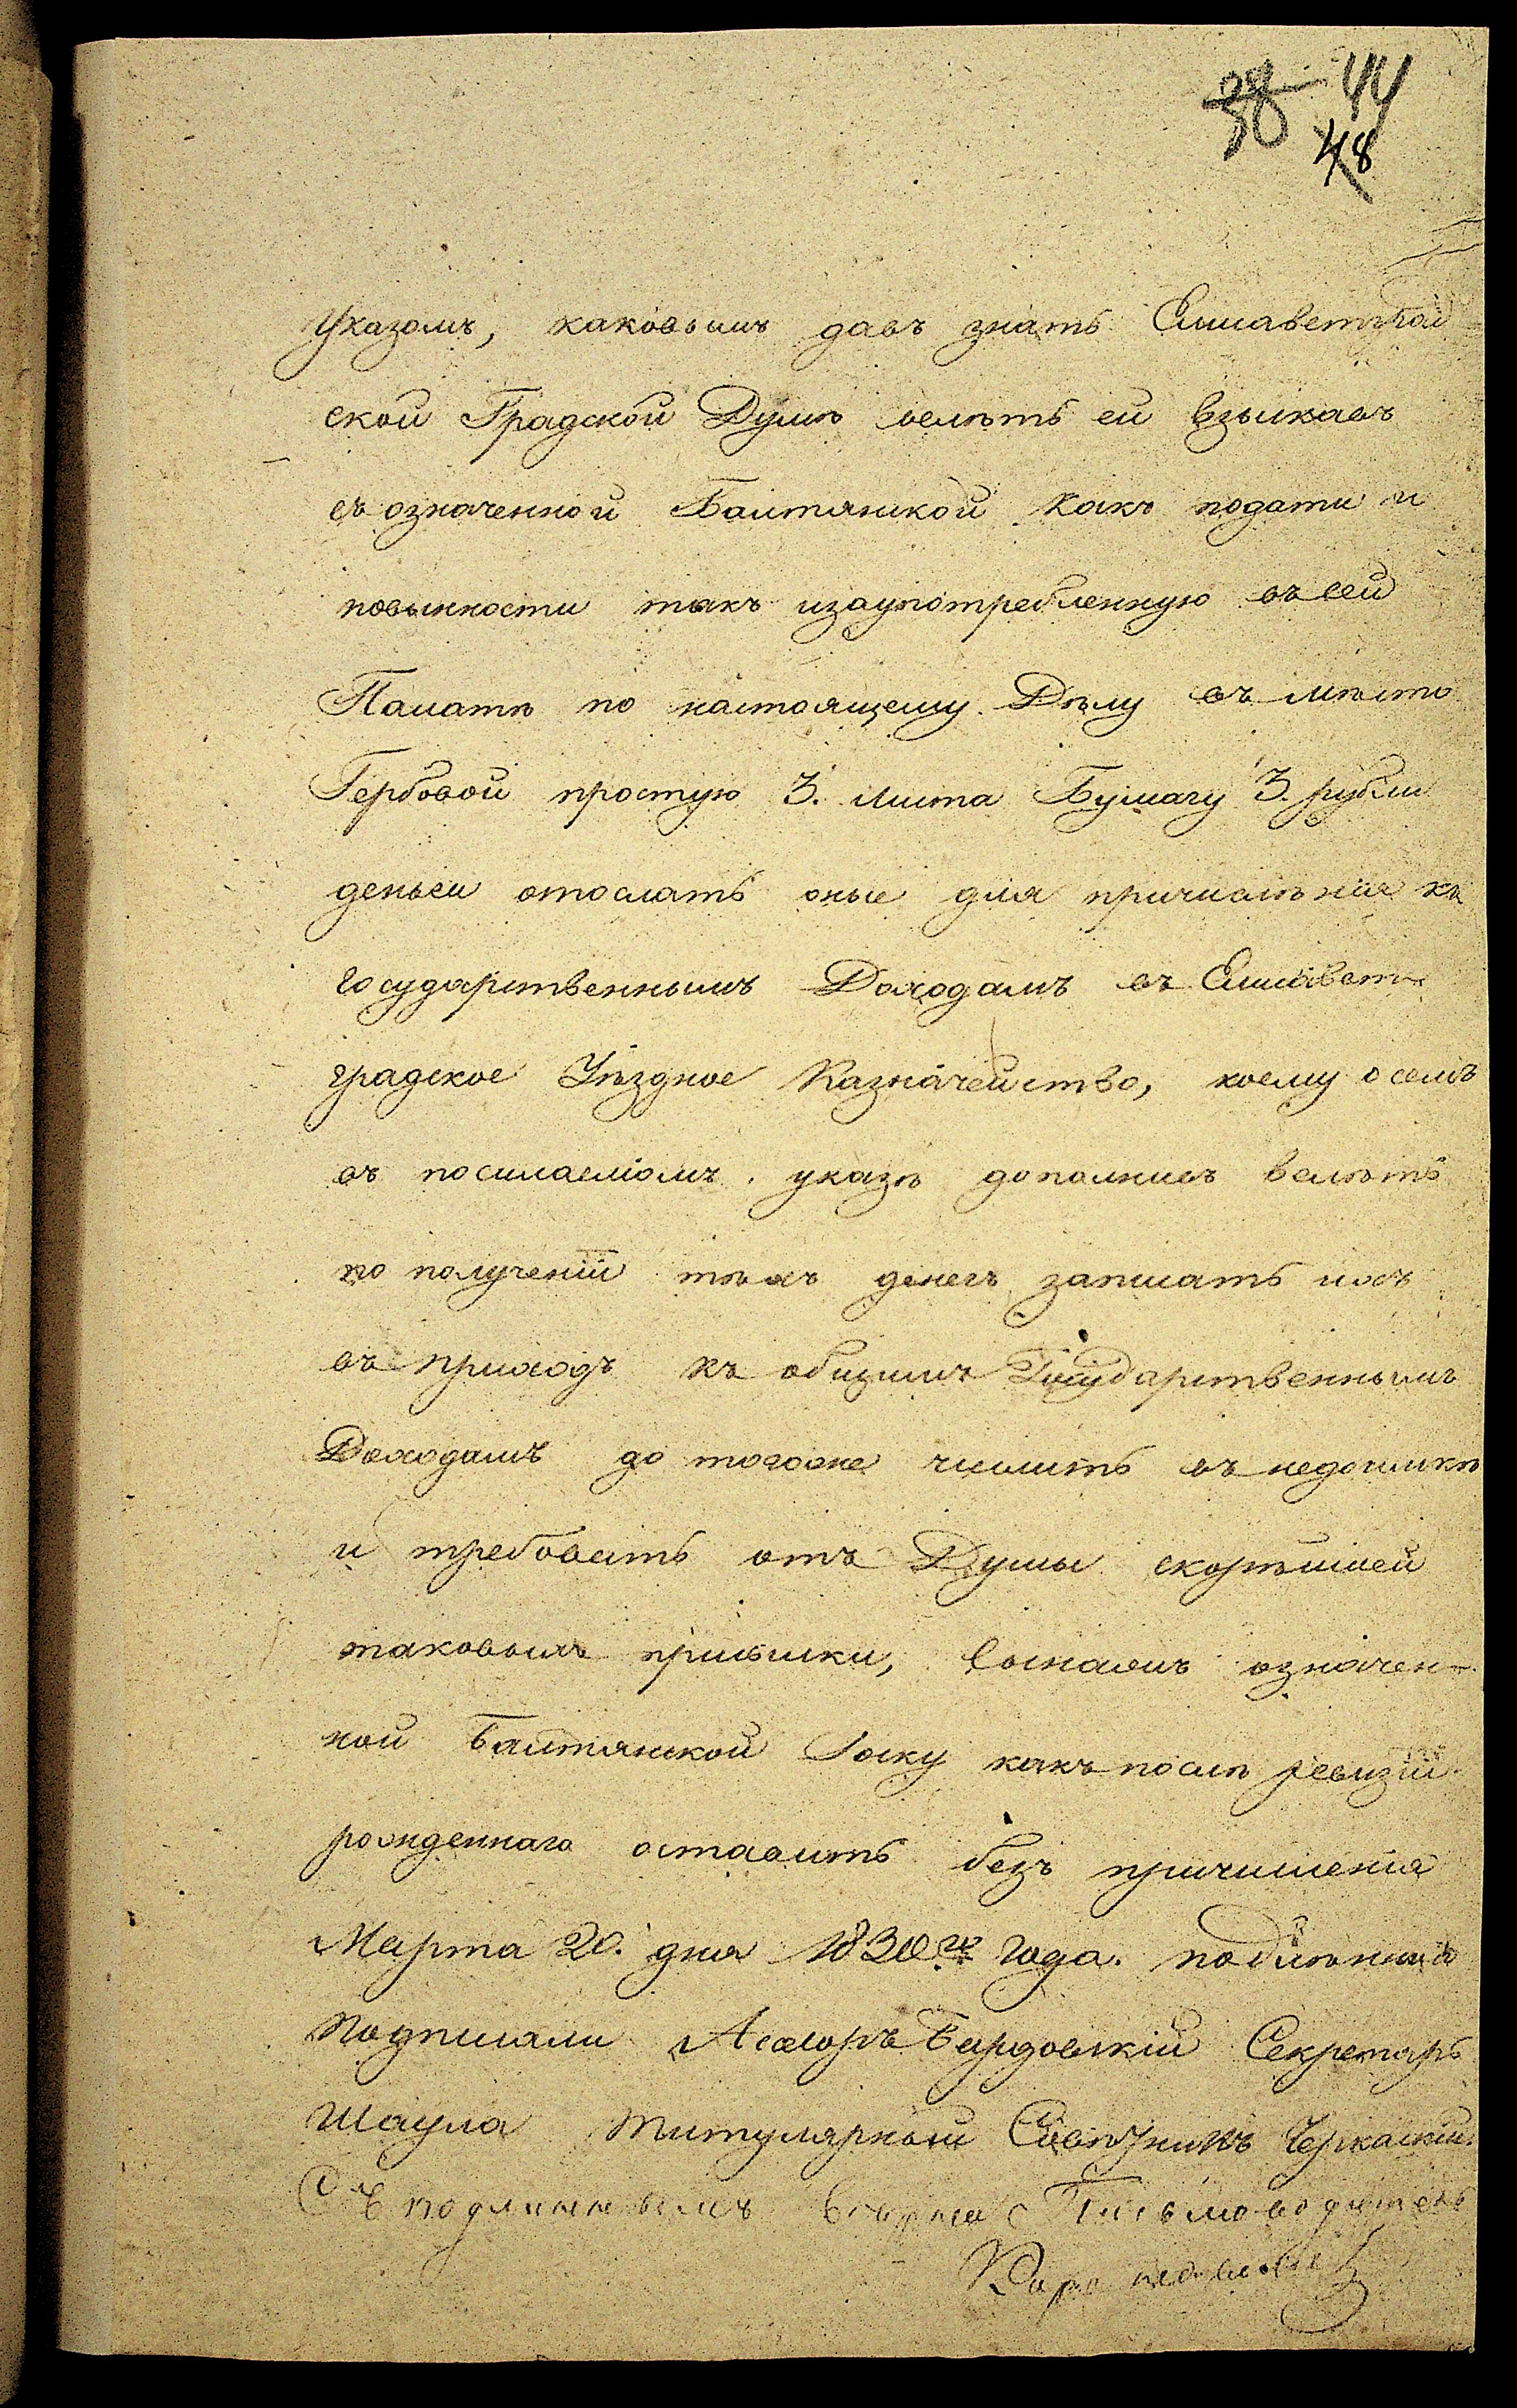 44
48
Указомъ, каковымъ давъ знать Елисаветград
ской Градской Думѣ велѣть ей взыскавъ
съ означенной Балтянской какъ подати и
повынности такъ изаупотребленную въ сей
Палатѣ по настоящему Дѣлу въ мѣсто
Гербовой простую 3. листа Бумагу 3. рубли
деньги отослать оные для причисленія къ
государственнымъ Доходамъ въ Елисавет-
градское Уѣздное Казначейство, коему о семъ
въ посилаемомъ указѣ дополнивъ велѣть
по полученіи тѣхъ денегъ записать ихъ
въ приходъ къ общимъ Государственнымъ
Доходамъ до тогоже числить въ недоимкѣ
и требовать отъ Думы скорѣйшей
таковыхъ присылки, Сынажъ означен-
ной Балтянской какъ послѣ ревизіи
рожденнаго оставить безъ причисленія
Марта 20. дня 1830го года. подлѣнный
подписали Асесоръ Бардовскій Секретарь
Шаула Титулярный Совѣтникъ Черкаский
Съ подлиннымъ вѣрно Письмоводитель